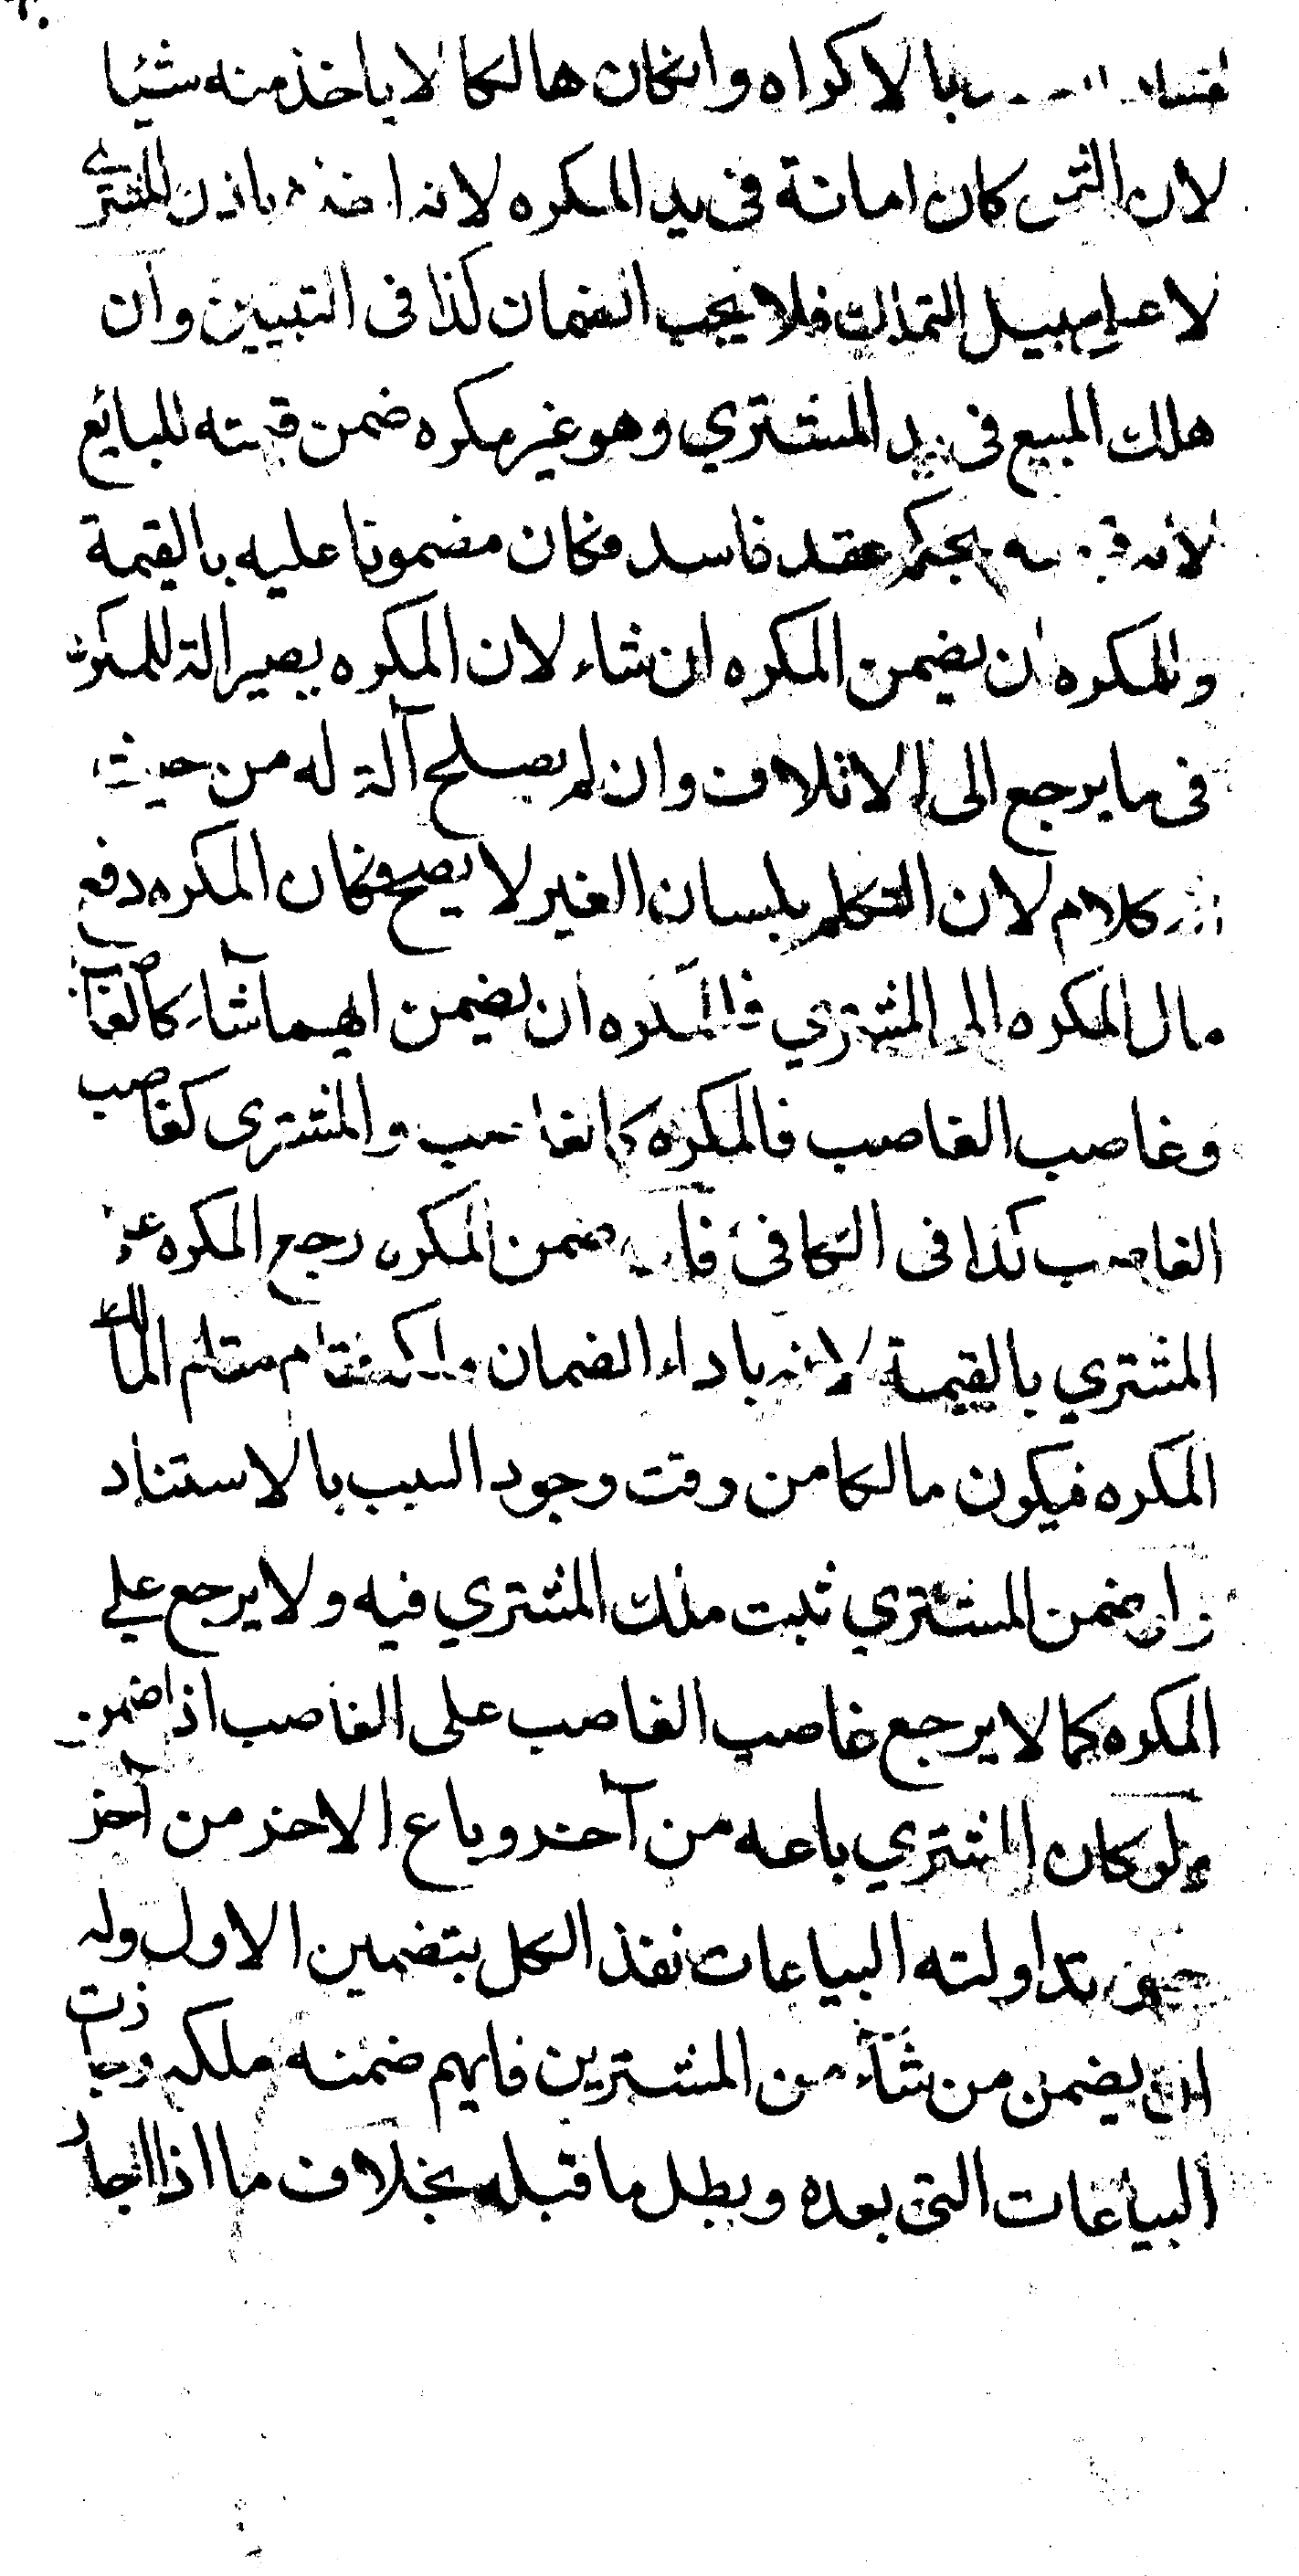 بالاكراه وانكان هالكا لا ياخذ منه شيئا
لان الثمن كان امانة فى يد المكره لانه اخذه باذن المشترى
لا على سبيل التملك فلا يجب الضمان كذا فى التبيين وان
هلك المبيع فى يد المشتري وهو غير مكره ضمن قيمته للبايع
لانه قبضه بحكم عقد فاسد فكان مضمونا عليه بالقيمة
وللمكره ان يضمن المكره ان شاء لان المكره يصير الة للمكره
فى ما يرجع الى الاتلاف وان لم يصلح آلة له من حيث
كلام لان التكلم بلسان الغير لا يصح فكان المكره دفع
مال المكره الى المشتري فللمكره ان يضمن ايهما شآء كالغاصب
وغاصب الغاصب فالمكره كالغاصب والمشترى كغاصب
الغاصب كذا فى الكافى فان ضمن المكره رجع المكره على
المشتري بالقيمة لانه باداء الضمان ملكه فقام مقام المالك
المكره فيكون مالكا من وقت وجود السبب بالاستناد
وان ضمن المشتري ثبت ملك المشتري فيه ولا يرجع على
المكره كما لا يرجع غاصب الغاصب على الغاصب اذا ضمن
ولو كان المشتري باعه من آخر وباع الاخر من آخر
حتى تداولته البياعات نفذ الكل بتضمين الاول وله
ان يضمن من شآء من المشترين فايهم ضمنه ملكه وجازت
البياعات التى بعده وبطل ما قبله بخلاف ما اذا اجاز